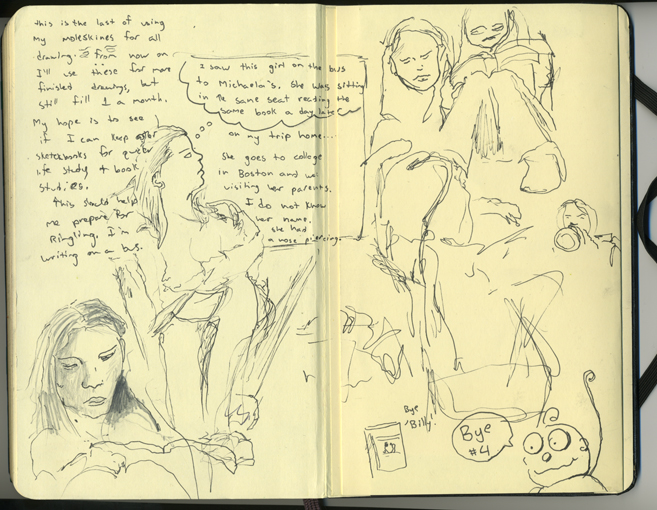 this is the last of using
my moleskines for all
drawing. from now on
I'll use these for more
finished drawings, but
still fill 1 a month.
My hope is to see
if I can keep
sketchbooks for
life study & book
studies.
this should help
me prepare for
Ringling. I'm
writing on a bus.
I saw this girl on the bus
to Michaela's. She was sitting
in the same seat reading the
same book a day later
on my trip home...
She goes to college
in Boston and was
visiting her parents.
I do not know
her name.
she had
a nose piercing.
Bye
'Billy'!
Bye
#4